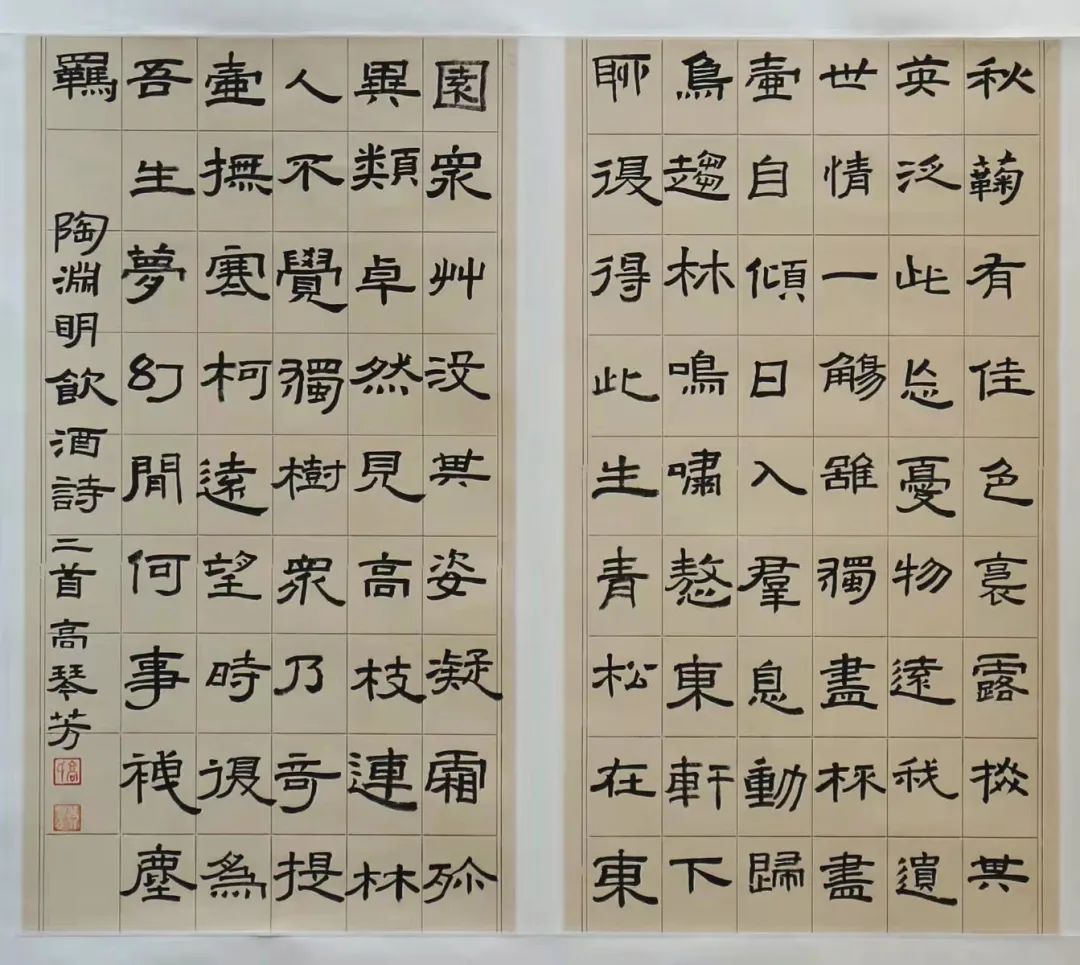 秋鞠有佳色裛露掇其
英泛此忘憂物遠我遺
世情一觴雖獨盡杯盡
壺自傾日入羣息動歸
鳥趨林鳴嘯慠東軒下
聊復得此生青松在東
園眾艸沒其姿凝霜殄
異類卓然見高枝連林
人不覺獨樹眾乃奇提
壺撫寒柯遠望時復為
吾生夢幻閒何事塵
羈
陶淵明飲酒詩二首 高琴芳